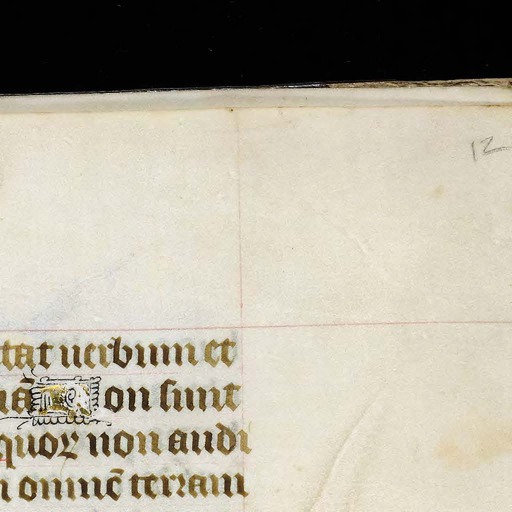 12
tat uerbum et
iā Non sunt
quoꝝ non audi
n omnē terram